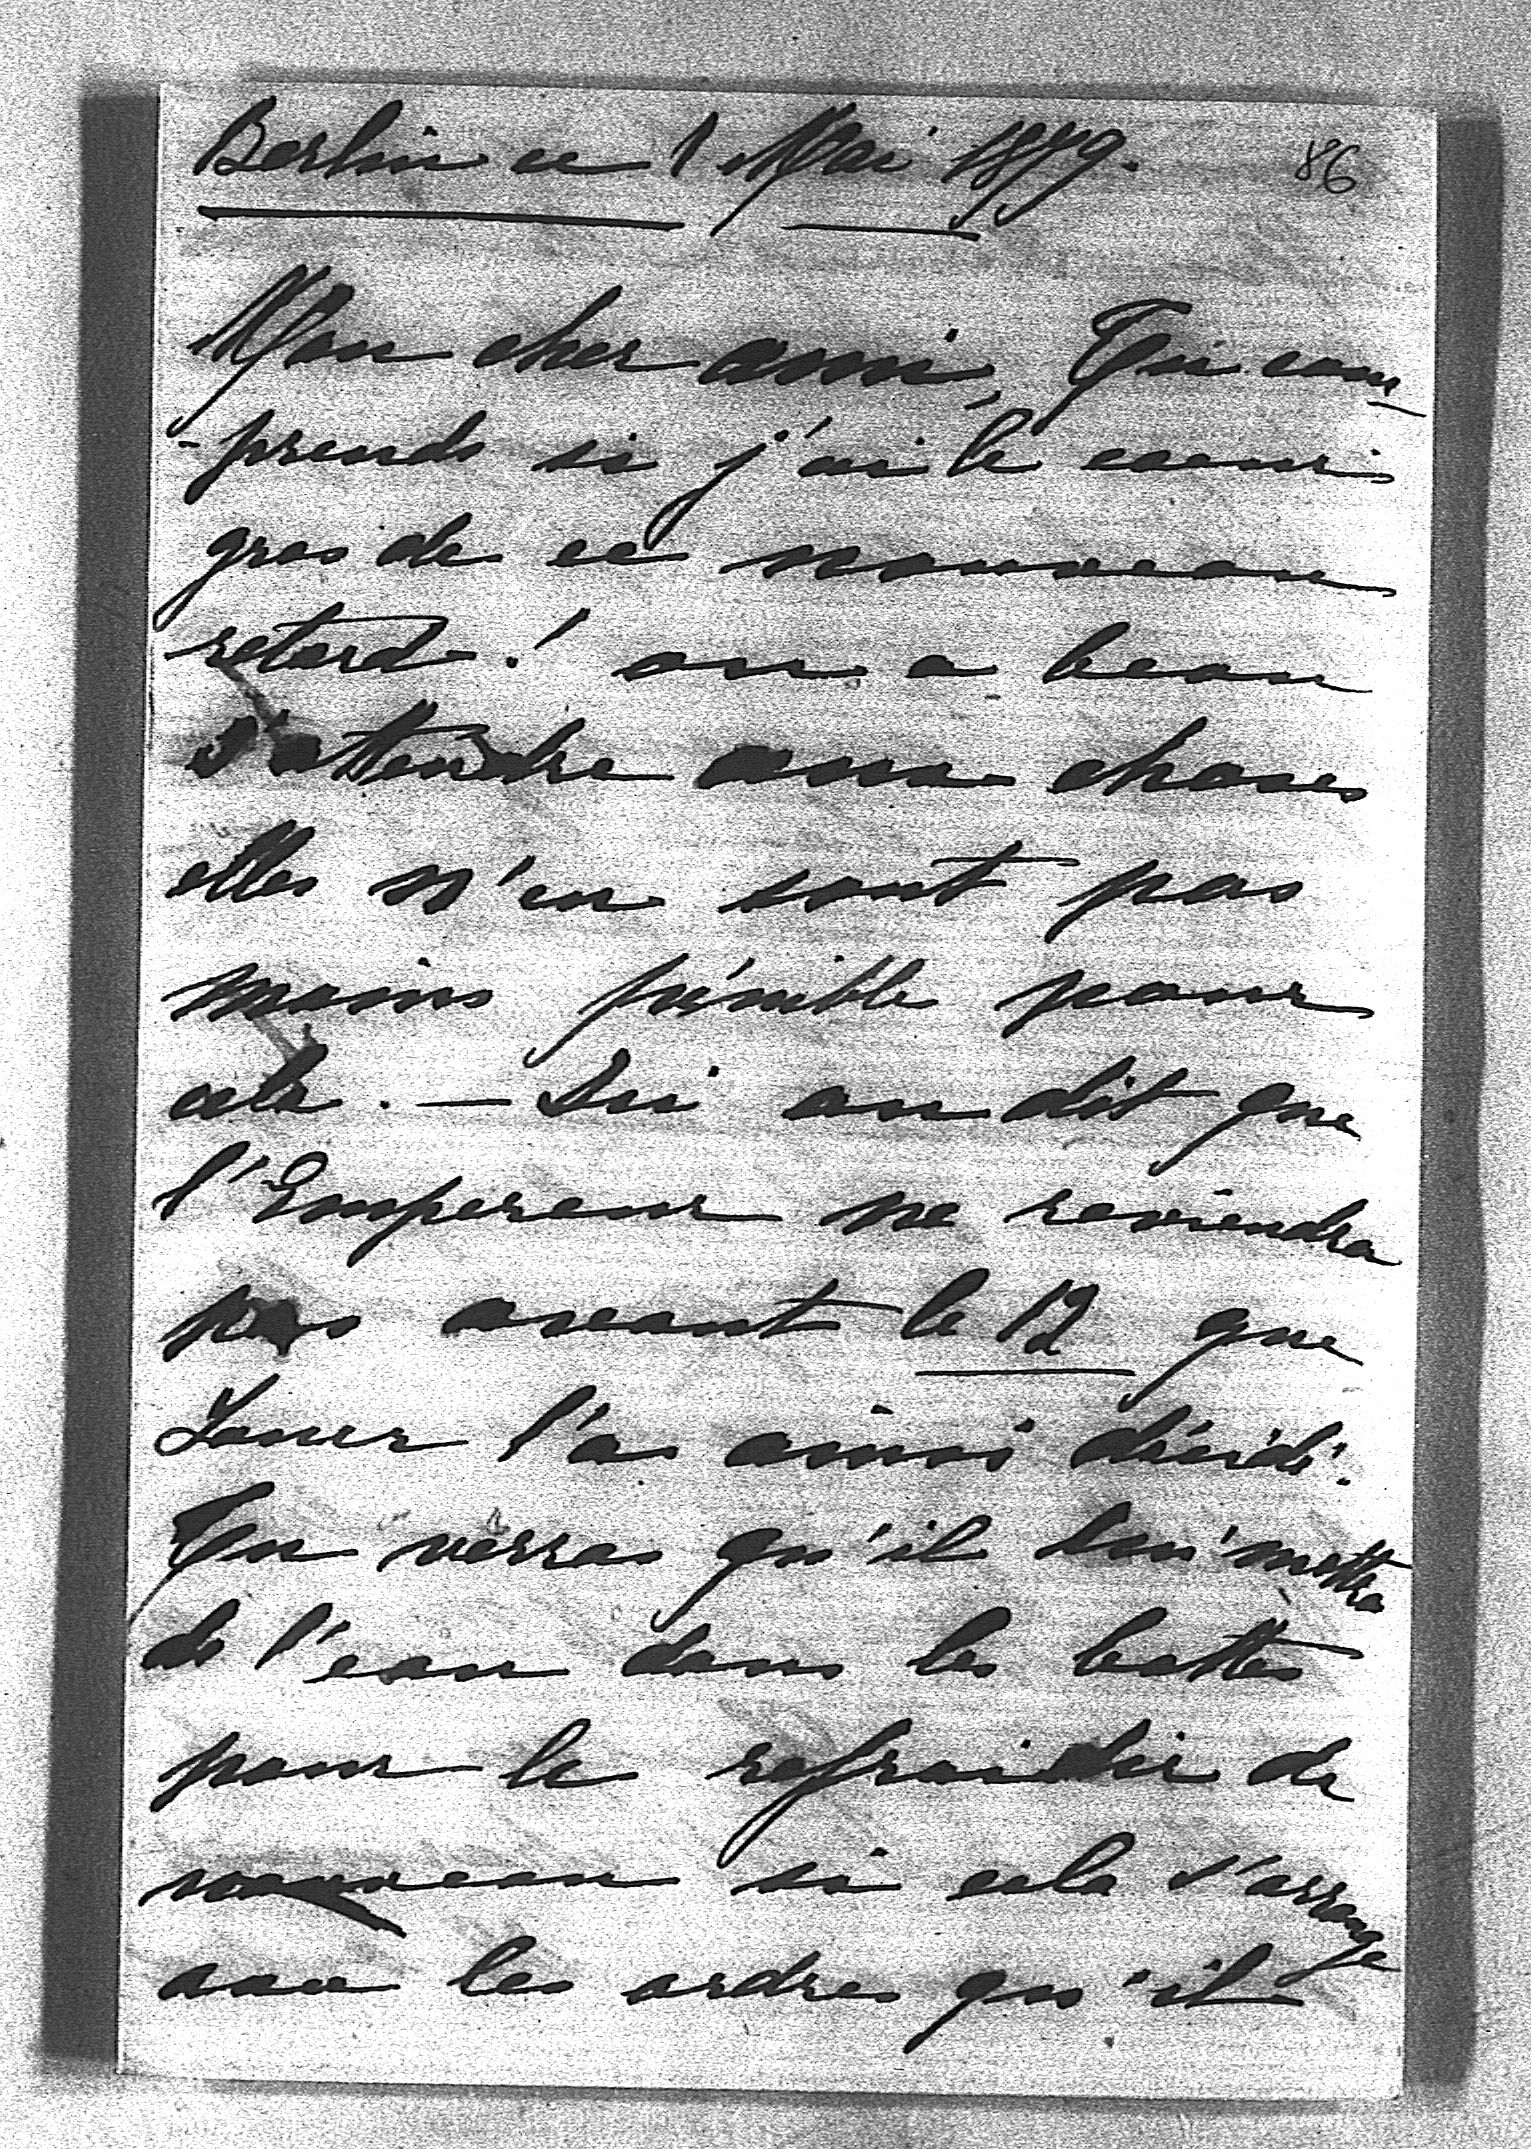 Berlin ce 1 Mai 1879. 86
Mon cher ami, Tu com
-prends si j'ai le coeur
gros de ce nouveau
retard! on a beau
s'attendre aux choses
elles n'en sont pas
moins pénible pour
cela. — Ici on dit que
l'Empereur ne reviendra
pas avant le 12 que
Lauer l'a ainsi décidé.
Tu verras qu'il lui mettra
de l'eau dans les bottes
pour le refroidir de
nouveau si cela s'arrange
avec les ordres qu'il